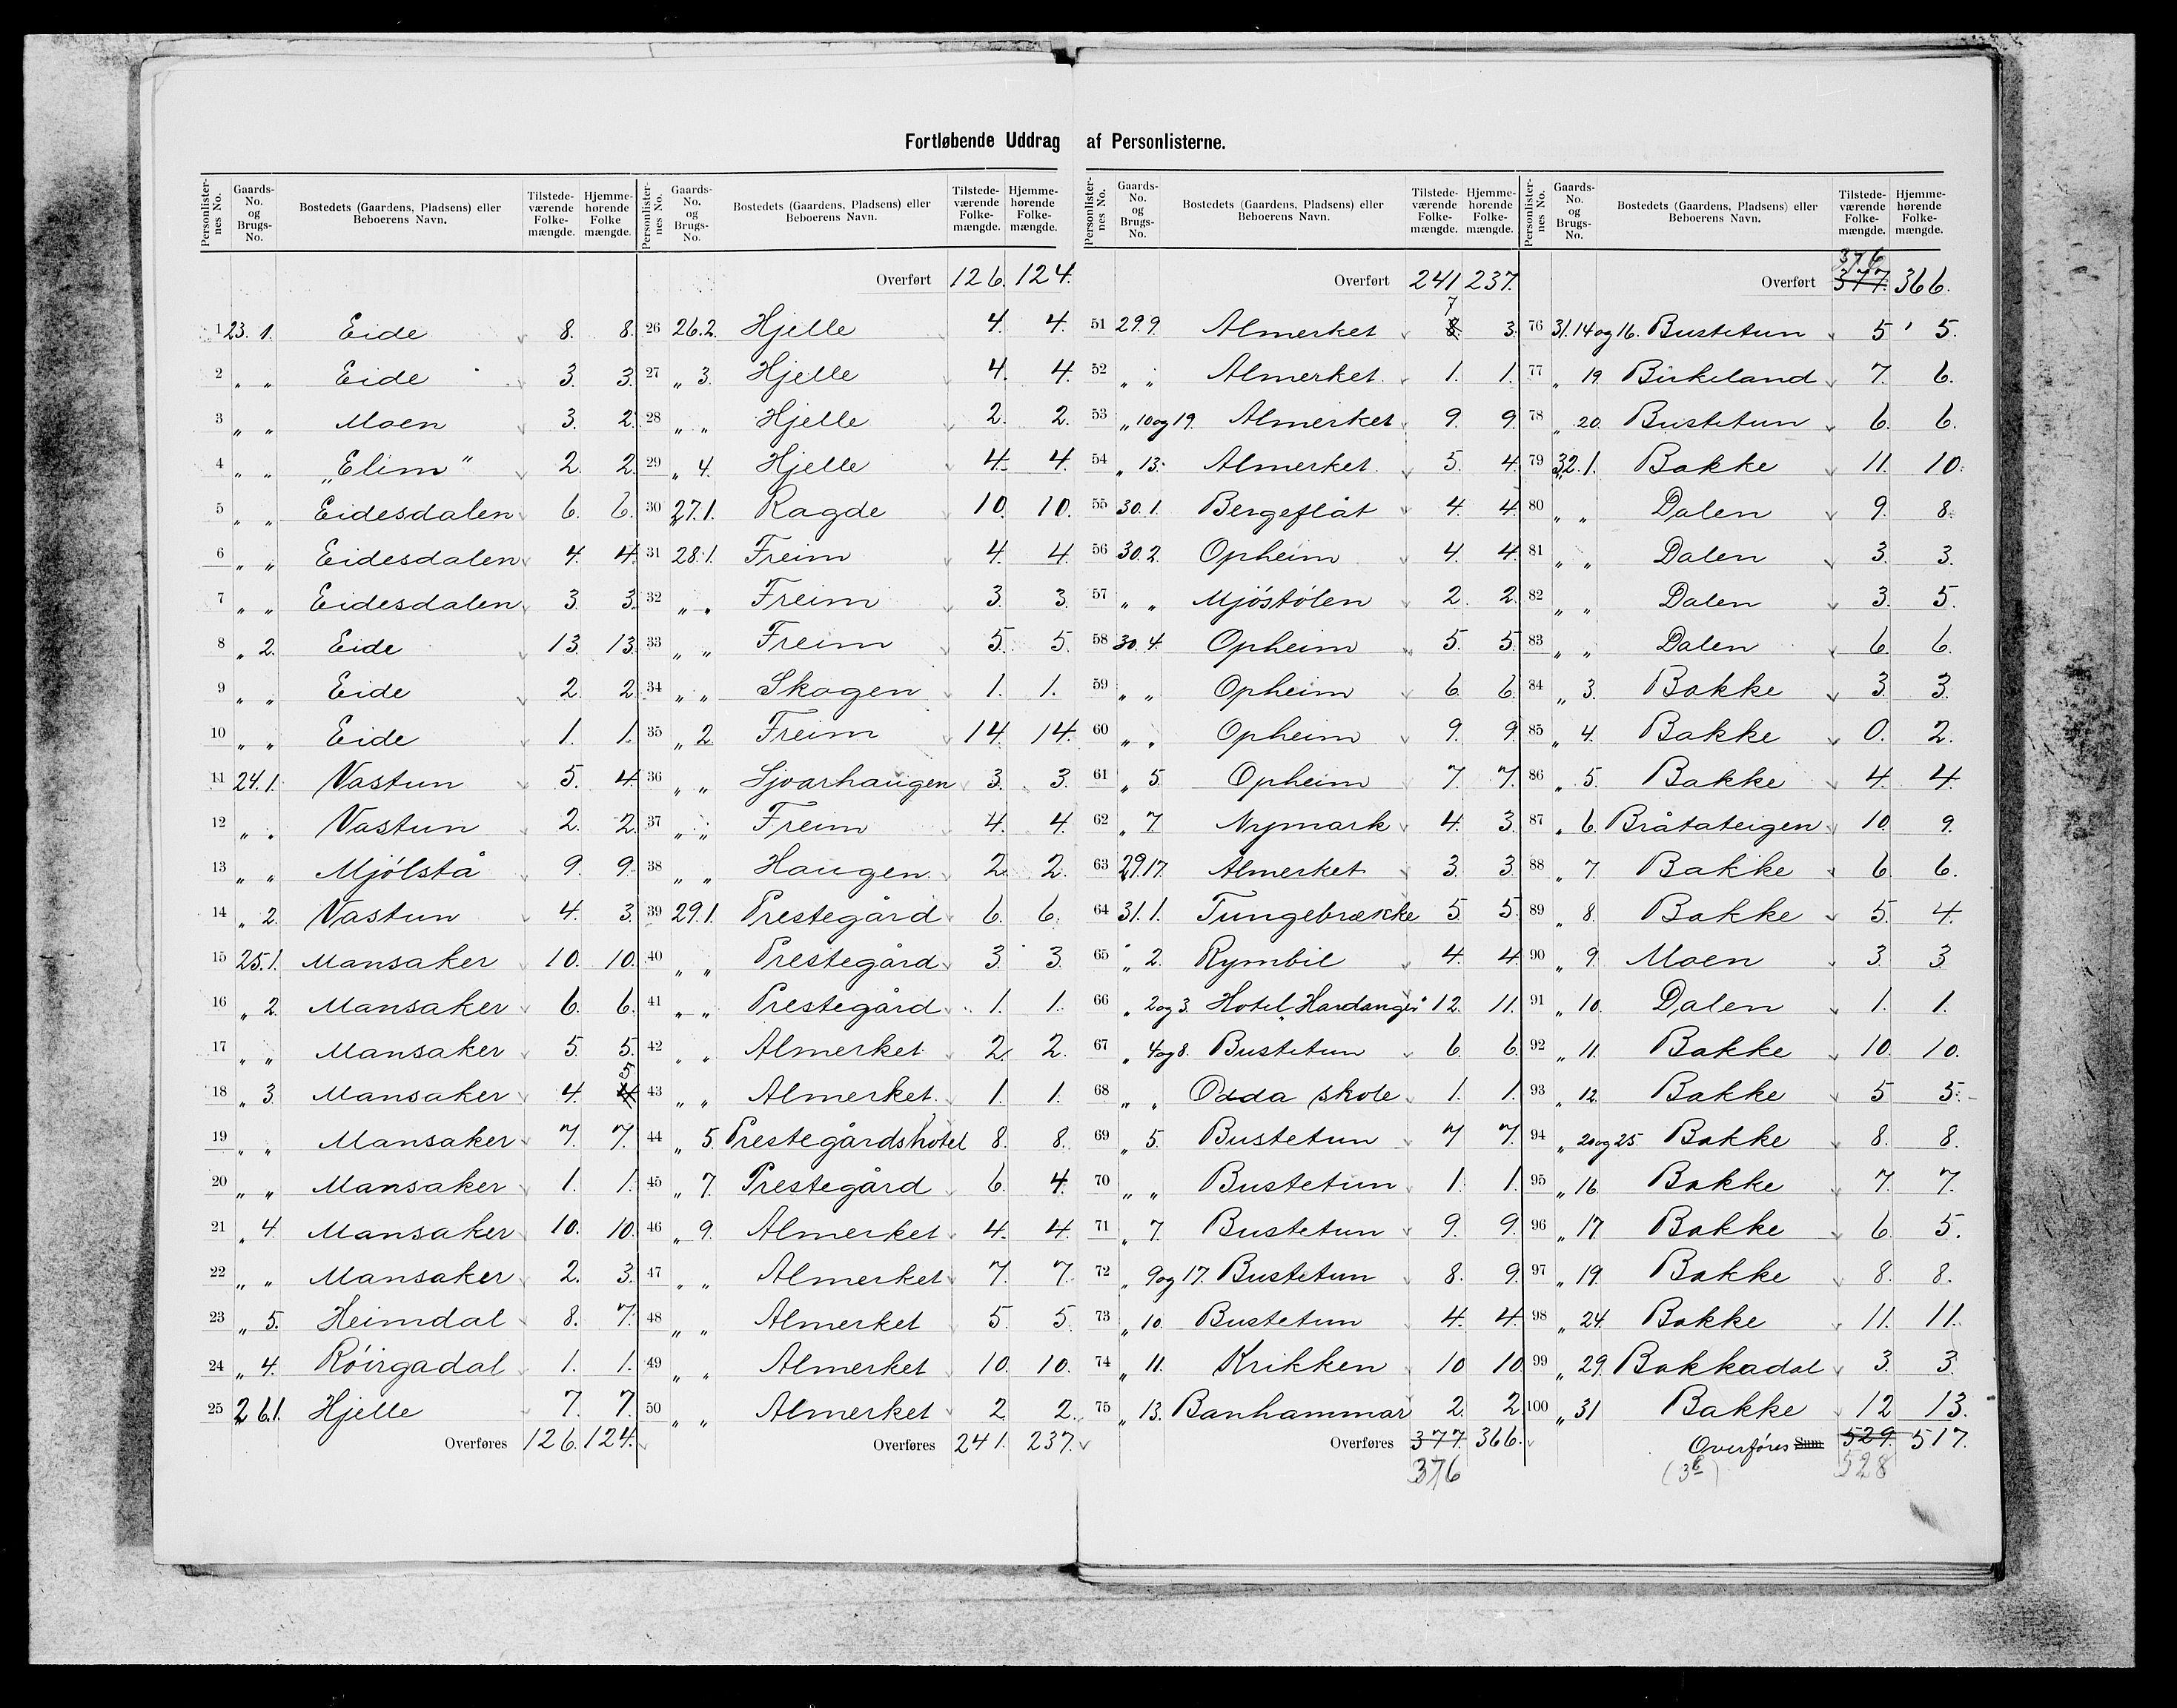 Fortløbende Uddrag af Personlisterne.
Personlister-nes No. Gaards-No. og Brugs-No. Bostedets (Gaardens, Pladsens) eller Beboerens Navn. Tilstede-værende Folke-mængde. Hjemme-hørende Folke mængde.
1 23. 1. Eide 8. 8.
2 „ „ Eide 3. 3.
3 „ „ Moen 3. 2.
4 „ „ „Elim" 2. 2.
5 „ „ Eidesdalen 6. 6.
6 „ „ Eidesdalen 4. 4.
7 „ „ Eidesdalen 3. 3.
8 „ 2. Eide 13. 13.
9 „ „ Eide 2. 2.
10 „ „ Eide 1. 1.
11 24. 1. Vastun 5. 4.
12 „ „ Vastun 2. 2.
13 „ „ Mjólstå 9. 9.
14 „ 2. Vastun 4. 3.
15 25. 1. Mansaker 10. 10.
16 „ 2. Mansaker 6. 6.
17 „ „ Mansaker 5. 5.
18 „ 3. Mansaker 4. 4 5
19 „ „ Mansaker 7. 7.
20 „ „ Mansaker 1. 1.
21 „ 4 Mansaker 10. 10.
22 „ „ Mansaker 2. 3.
23 „ 5. Heimdal 8. 7.
24 „ 4. Róirgadal 1. 1.
25 26.1. Hjelle 7. 7.
Overføres 126. 124.
Personlister-nes No. Gaards-No. og Brugs-No. Bostedets (Gaardens, Pladsens) eller Beboerens Navn. Tilstede-værende Folke-mængde. Hjemme-hørende Folke-mængde.
Overført 126. 124.
26 26.2. Hjelle 4. 4.
27 „ 3. Hjelle 4. 4.
28 „ „ Hjelle 2. 2.
29 „ 4. Hjelle 4. 4.
30 27.1. Ragde 10. 10.
31 28.1. Freim 4. 4.
32 „ „ Freim 3. 3.
33 „ „ Freim 5. 5.
34 „ „ Skogen 1. 1.
35 „ 2. Freim 14. 14.
36 „ „ Sjoarhaugen 3. 3.
37 „ „ Freim 4. 4.
38 „ „ Haugen 2. 2.
39 29.1. Prestegård 6. 6.
40 „ „ Prestegård 3. 3.
41 „ „ Prestegård 1. 1.
42 „ „ Almerket 2. 2.
43 „ „ Almerket 1. 1.
44 „ 5. Prestegårdshotel 8. 8.
45 „ 7. Prestegård 6. 4.
46 „ 9. Almerket 4. 4.
47 „ „ Almerket 7. 7.
48 „ „ Almerket 5. 5.
49 „ „ Almerket 10. 10.
50 „ „ Almerket 2. 2.
Overføres 241. 237.
Personlister-nes No. Gaards-No. og Brugs-No. Bostedets (Gaardens, Pladsens) eller Beboerens Navn. Tilstede-værende Folke-mængde. Hjemme-hørende Folke-mængde.
Overført 241 237.
51 29.9. Almerket 8. 7 3.
52 „ „ Almerket 1. 1.
53 „ 10og 19. Almerket 9. 9.
54 „ 13. Almerket 5. 4.
55 30.1. Bergeflåt 4. 4.
56 30.2. Opheim 4. 4.
57 „ „ Mjóstólen 2. 2.
58 30.4. Opheim 5. 5.
59 „ „ Opheim 6. 6.
60 „ „ Opheim 9. 9.
61 „ 5. Opheim 7. 7.
62 „ 7. Nymark 4. 3.
63 29.17. Almerket 3. 3.
64 31.1. Tungebrække 5. 5.
65 „ 2. Rymbil 4. 4.
66 „ 2og 3. Hotel „Hardanger" 12. 11.
67 „ 4og 8. Bustetun 6. 6.
68 „ „ Odda skole 1. 1.
69 „ 5. Bustetun 7 7.
70 „ „ Bustetun 1. 1.
71 „ 7. Bustetun 9. 9.
72 „ 9og 17. Bustetun 8. 9.
73 „ 10. Bustetun 4. 4.
74 „ 11. Krikken 10 10.
75 „ 13. Banhammar 2. 2.
Overføres 377. 366.
376
Personlister-nes No. Gaards-No. og Brugs-No. Bostedets (Gaardens, Pladsens) eller Beboerens Navn. Tilstede-værende Folke-mængde. Hjemme-hørende Folke-mængde.
376
Overført 377. 366.
76 31.14og 16. Bustetun 5 5.
77 „ 19. Birkeland 7. 6.
78 „ 20. Bustetun 6. 6.
79 32.1. Bakke 11. 10.
80 „ „ Dalen 9. 8.
81 „ „ Dalen 3. 3.
82 „ „ Dalen 3. 5.
83 „ „ Dalen 6. 6.
84 „ 3. Bakke 3. 3.
85 „ 4. Bakke 0. 2.
86 „ 5. Bakke 4. 4.
87 „ 6. Bråtateigen 10. 9.
88 „ 7 Bakke 6. 6.
89 „ 8. Bakke 5. 4.
90 „ 9. Moen 3. 3
91 „ 10. Dalen 1. 1.
92 „ 11. Bakke 10. 10.
93 „ 12. Bakke 5 5.
94 „ 20og 25. Bakke 8. 8.
95 „ 16. Bakke 7. 7.
96 „ 17 Bakke 6. 5.
97 „ 19. Bakke 8. 8.
98 „ 24. Bakke 11. 11.
99 „ 29. Bakkadal 3. 3.
100 „ 31 Bakke 12 13.
Overføres Sum 529. 517.
528